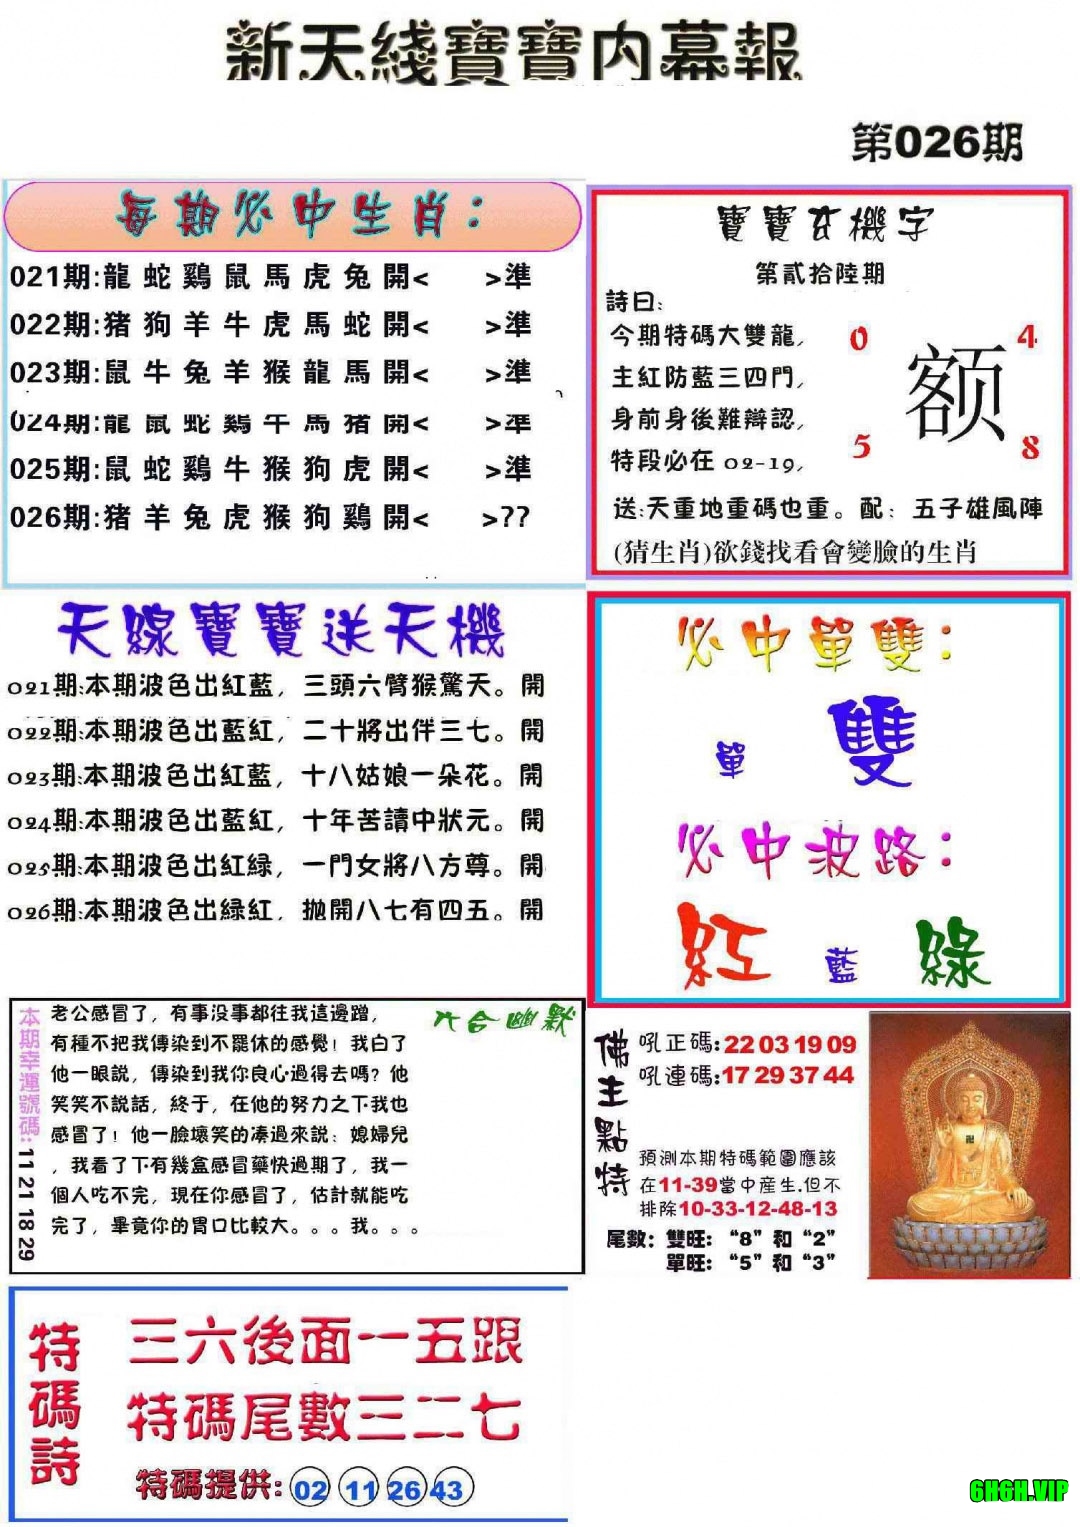 新天綫寶寶内幕報
第026期
每期必中生肖：
021期:龍 蛇 鷄 鼠 馬 虎 兔 開< >準
022期:猪 狗 羊 牛 虎 馬 蛇 開< >準
023期:鼠 牛 兔 羊 猴 龍 馬 開< >準
024期:龍 鼠 蛇 鷄 牛 馬 猪 開< >準
025期:鼠 蛇 鷄 牛 猴 狗 虎 開< >準
026期:猪 羊 兔 虎 猴 狗 鷄 開< >??
寶寶玄機字
第貳拾陸期
詩曰:
今期特碼大雙龍,
主紅防藍三四門,
身前身後難辯認,
特段必在 02-19,
0 4
额
5 8
送:天重地重碼也重。配：五子雄風陣
(猜生肖)欲錢找看會變臉的生肖
天線寶寶送天機
021期:本期波色出紅藍，三頭六臂猴驚天。開
022期:本期波色出藍紅，二十將出伴三七。開
023期:本期波色出紅藍，十八姑娘一朵花。開
024期:本期波色出藍紅，十年苦讀中狀元。開
025期:本期波色出紅緑，一門女將八方尊。開
026期:本期波色出綠紅，拋開八七有四五。開
必中單雙：
單 雙
必中波路：
紅 藍 綠
本期幸運號碼:11 21 18 29
六合幽默
老公感冒了，有事没事都往我這邊蹭，
有種不把我傳染到不罷休的感覺！我白了
他一眼説，傳染到我你良心過得去嗎？他
笑笑不説話，終于，在他的努力之下我也
感冒了！他一臉壞笑的凑過來説：媳婦兒
，我看了下有幾盒感冒藥快過期了，我一
個人吃不完，現在你感冒了，估計就能吃
完了，畢竟你的胃口比較大。。。我。。。
佛主點特
吼正碼:22 03 19 09
吼連碼:17 29 37 44
預測本期特碼範圍應該
在11-39當中産生.但不
排除10-33-12-48-13
尾數：雙旺：“8”和“2”
單旺：“5”和“3”
特碼詩
三六後面一五跟
特碼尾數三二七
特碼提供: 02 11 26 43
6H6H.VIP